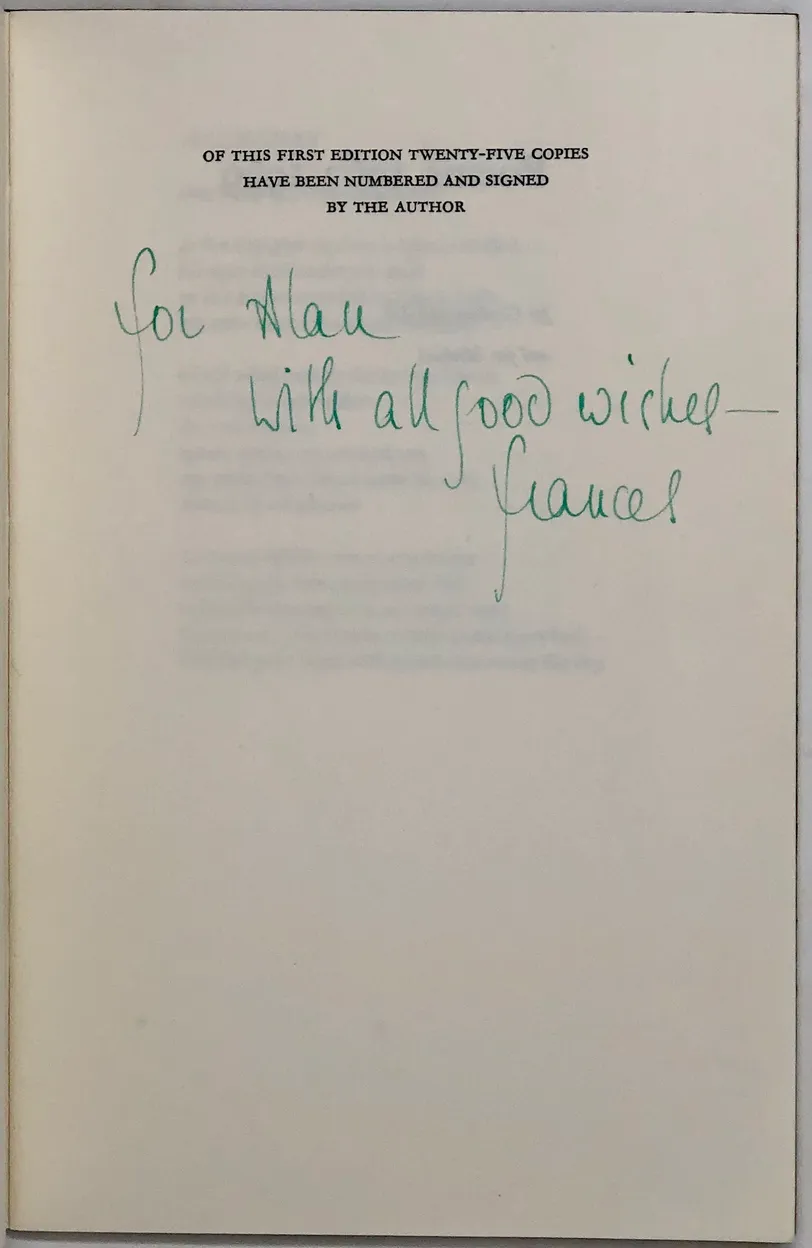 OF THIS FIRST EDITION TWENTY-FIVE COPIES
HAVE BEEN NUMBERED AND SIGNED
BY THE AUTHOR
for Alan
with all good wishes—
Frances